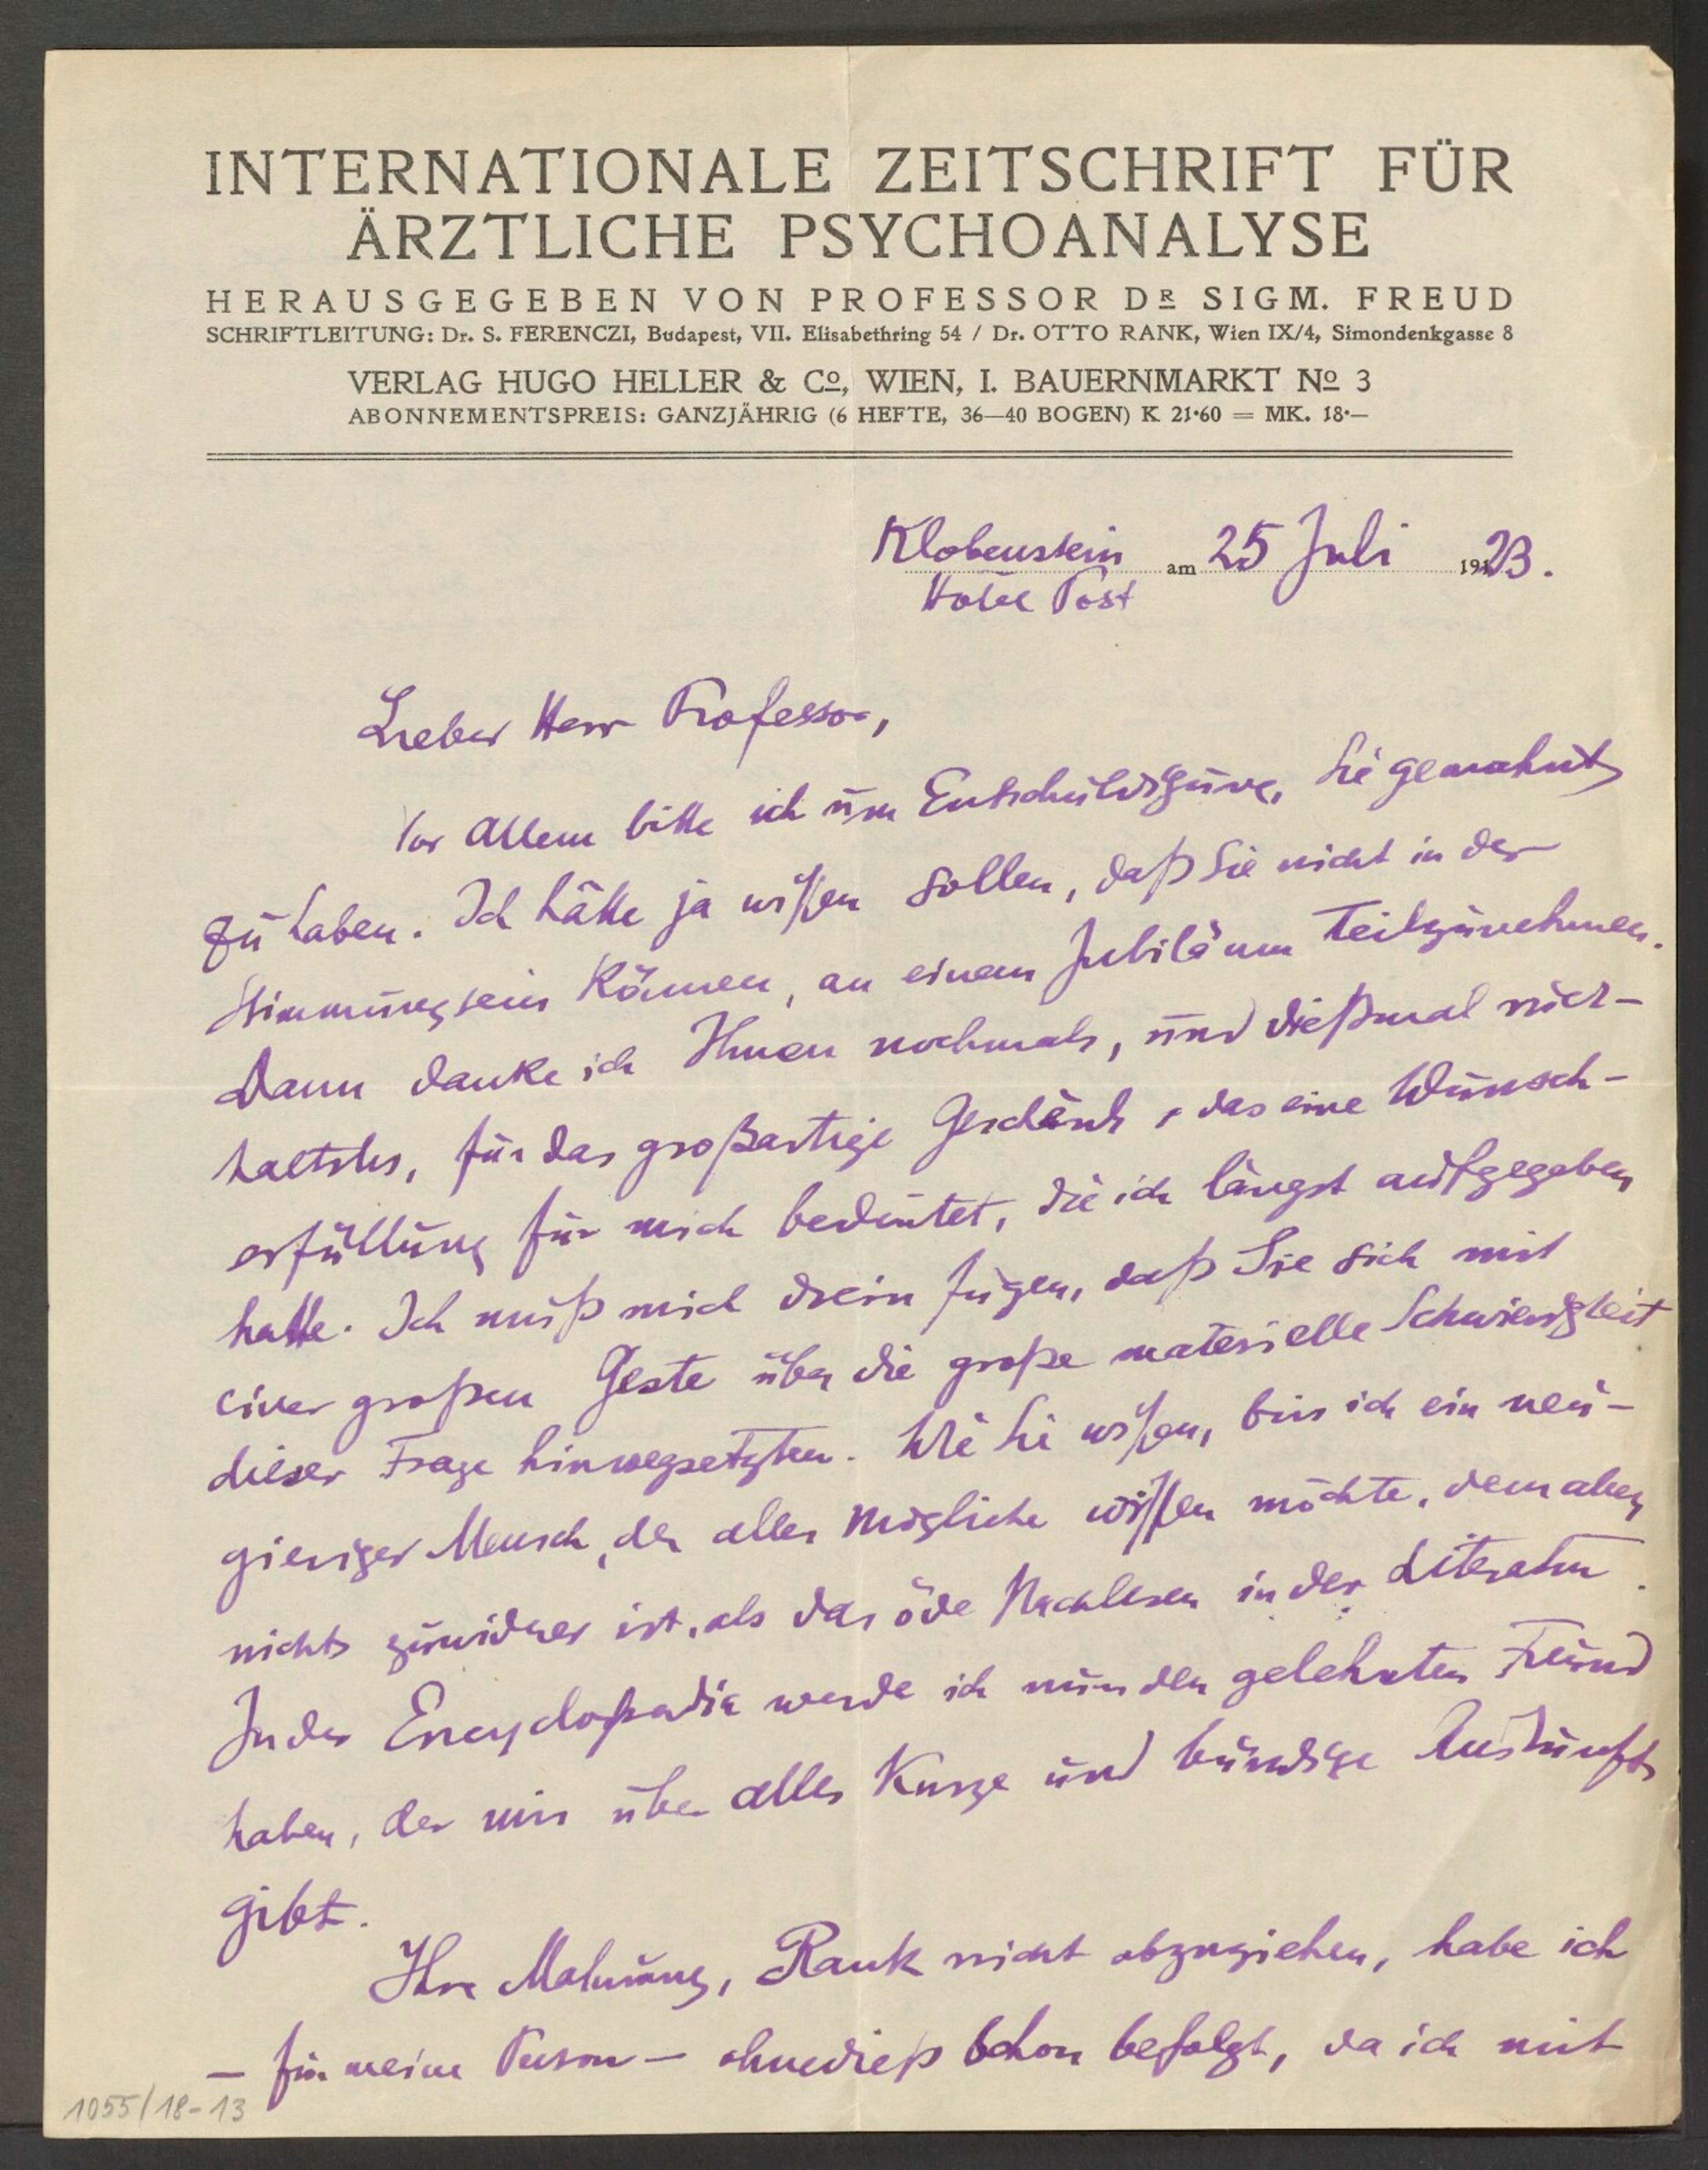 INTERNATIONALE ZEITSCHRIFT FÜR
ÄRZTLICHE PSYCHOANALYSE
HERAUSGEGEBEN VON PROFESSOR DR SIGM. FREUD
SCHRIFTLEITUNG: Dr. S. FERENCZI, Budapest, VII. Elisabethring 54 / Dr. OTTO RANK, Wien IX/4, Simondenkgasse 8
VERLAG HUGO HELLER & Co, WIEN, I. BAUERNMARKT No 3
ABONNEMENTSPREIS: GANZJÄHRIG (6 HEFTE, 36—40 BOGEN) K 21·60 = MK. 18·—
Klobenstein am 25 Juli 1923.
Hotel Post
Lieber Herr Professor,
Vor allem bitte ich um Entschuldigung, Sie gemahnt
zu haben. Ich hätte ja wissen sollen, daß Sie nicht in der
Stimmung sein können, an einem Jubiläum teilzunehmen.
Dann danke ich Ihnen nochmals, und dießmal rück-
haltslos, für das großartige Geschenk, das eine Wunsch-
erfüllung für mich bedeutet, die ich längst aufgegeben
hatte. Ich muß mich drein fügen, daß Sie sich mit
einer großen Geste über die große materielle Schwierigkeit
dieser Frage hinwegsetzten. Wie Sie wissen, bin ich ein neu-
gieriger Mensch, der alles Mögliche wissen möchte, dem aber
nichts zuwidrer ist, als das öde Nachlesen in der Literatur.
In der Encyclopædia werde ich nun den gelehrten Freund
haben, der mir über alles kurze und bündige Auskunft
gibt.
Ihre Mahnung, Rank nicht abzuziehen, habe ich
— für meine Person — ohnedieß schon befolgt, da ich mit
1055/18-13